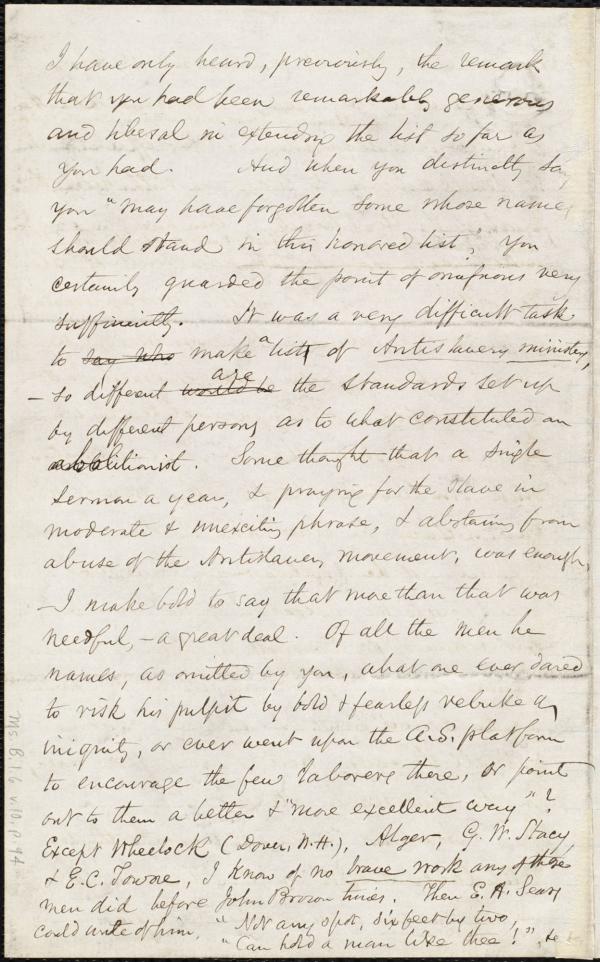 I have only heard, previously, the remark
that you had been remarkably generous
and liberal in extending the list so far as
you had. And when you distinctly say
you "may have forgotten some whose names
should stand in this honored list", you
certainly guarded the point of omissions very
sufficiently. It was a very difficult task
to say who make a list of Antislavery ministers,
- so different would be are the standards set up
by different persons as to what constituted an
abolitionist. Some thought that a single
sermon a year, & praying for the slave in
moderate & unexciting phrase, & abstaining from
abuse of the Antislavery movement, was enough.
- I make bold to say that more than that was
needful, - a great deal. Of all the men he
names, as omitted by you, what one ever dared
to risk his pulpit by bold & fearless rebuke of
iniquity, or ever went upon the A.S. platform
to encourage the few laborers there, or point
out to them a better & "more excellent way"?
Except Wheelock (Dover, N.H.), Alger, G. W. Stacy,
& E. C. Towne, I know of no brave work any of those
men did before John Brown times. Then E. H. Sears
could write of him, "Not any spot, six feet by two,
"Can hold a man like thee!" &c
Ms. B. 1. 6 v. 10, p. 94